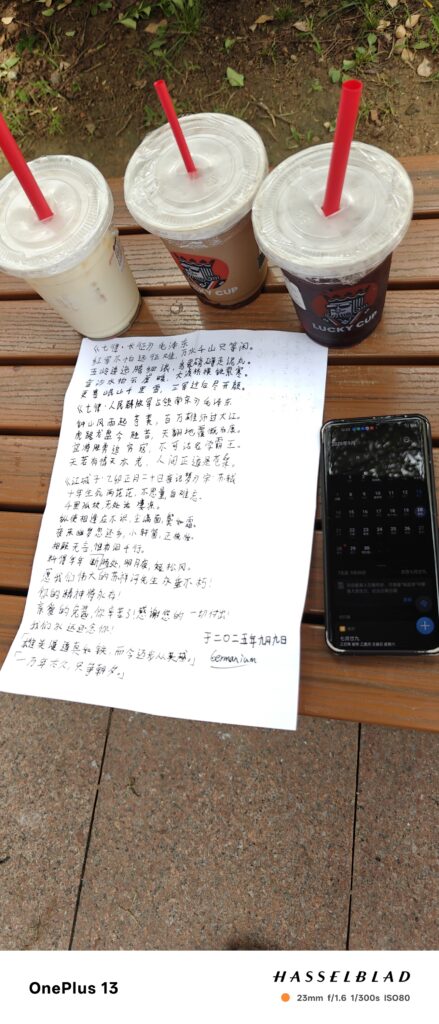 LUCKY CUP
LUCKY CUP
《七律·长征》毛泽东
红军不怕远征难，万水千山只等闲。
五岭逶迤腾细浪，乌蒙磅礴走泥丸。
金沙水拍云崖暖，大渡桥横铁索寒。
更喜岷山千里雪，三军过后尽开颜。
《七律·人民解放军占领南京》毛泽东
钟山风雨起苍黄，百万雄师过大江。
虎踞龙盘今胜昔，天翻地覆慨而慷。
宜将剩勇追穷寇，不可沽名学霸王。
天若有情天亦老，人间正道是沧桑。
《江城子·乙卯正月二十日夜记梦》宋·苏轼
十年生死两茫茫，不思量自难忘。
千里孤坟，无处话凄凉。
纵使相逢应不识，尘满面，鬓如霜。
夜来幽梦忽还乡，小轩窗，正梳妆。
相顾无言，惟有泪千行。
料得年年断肠处，明月夜，短松冈。
愿我们伟大的 先生永垂不朽！
你的精神将永存！
亲爱的 ，你辛苦了！感谢您的一切付出！
我们永远
于二〇二五年九月九日
「雄关漫道真如铁，而今迈步从头越。」
Germanium
「一万年太久，只争朝夕。」
2025年9月
七月廿九
OnePlus 13
HASSELBLAD
23mm f/1.6 1/300s ISO80